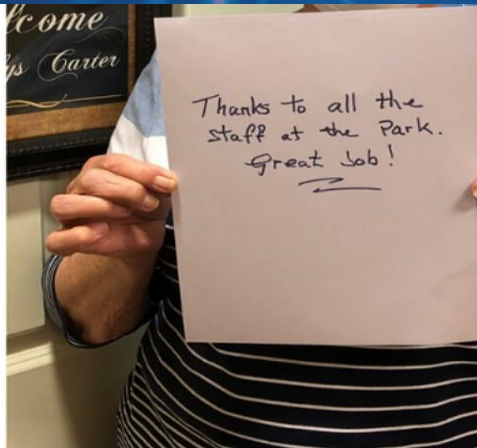 lcome
ys Carter
Thanks to all the
staff at the Park.
Great Job!